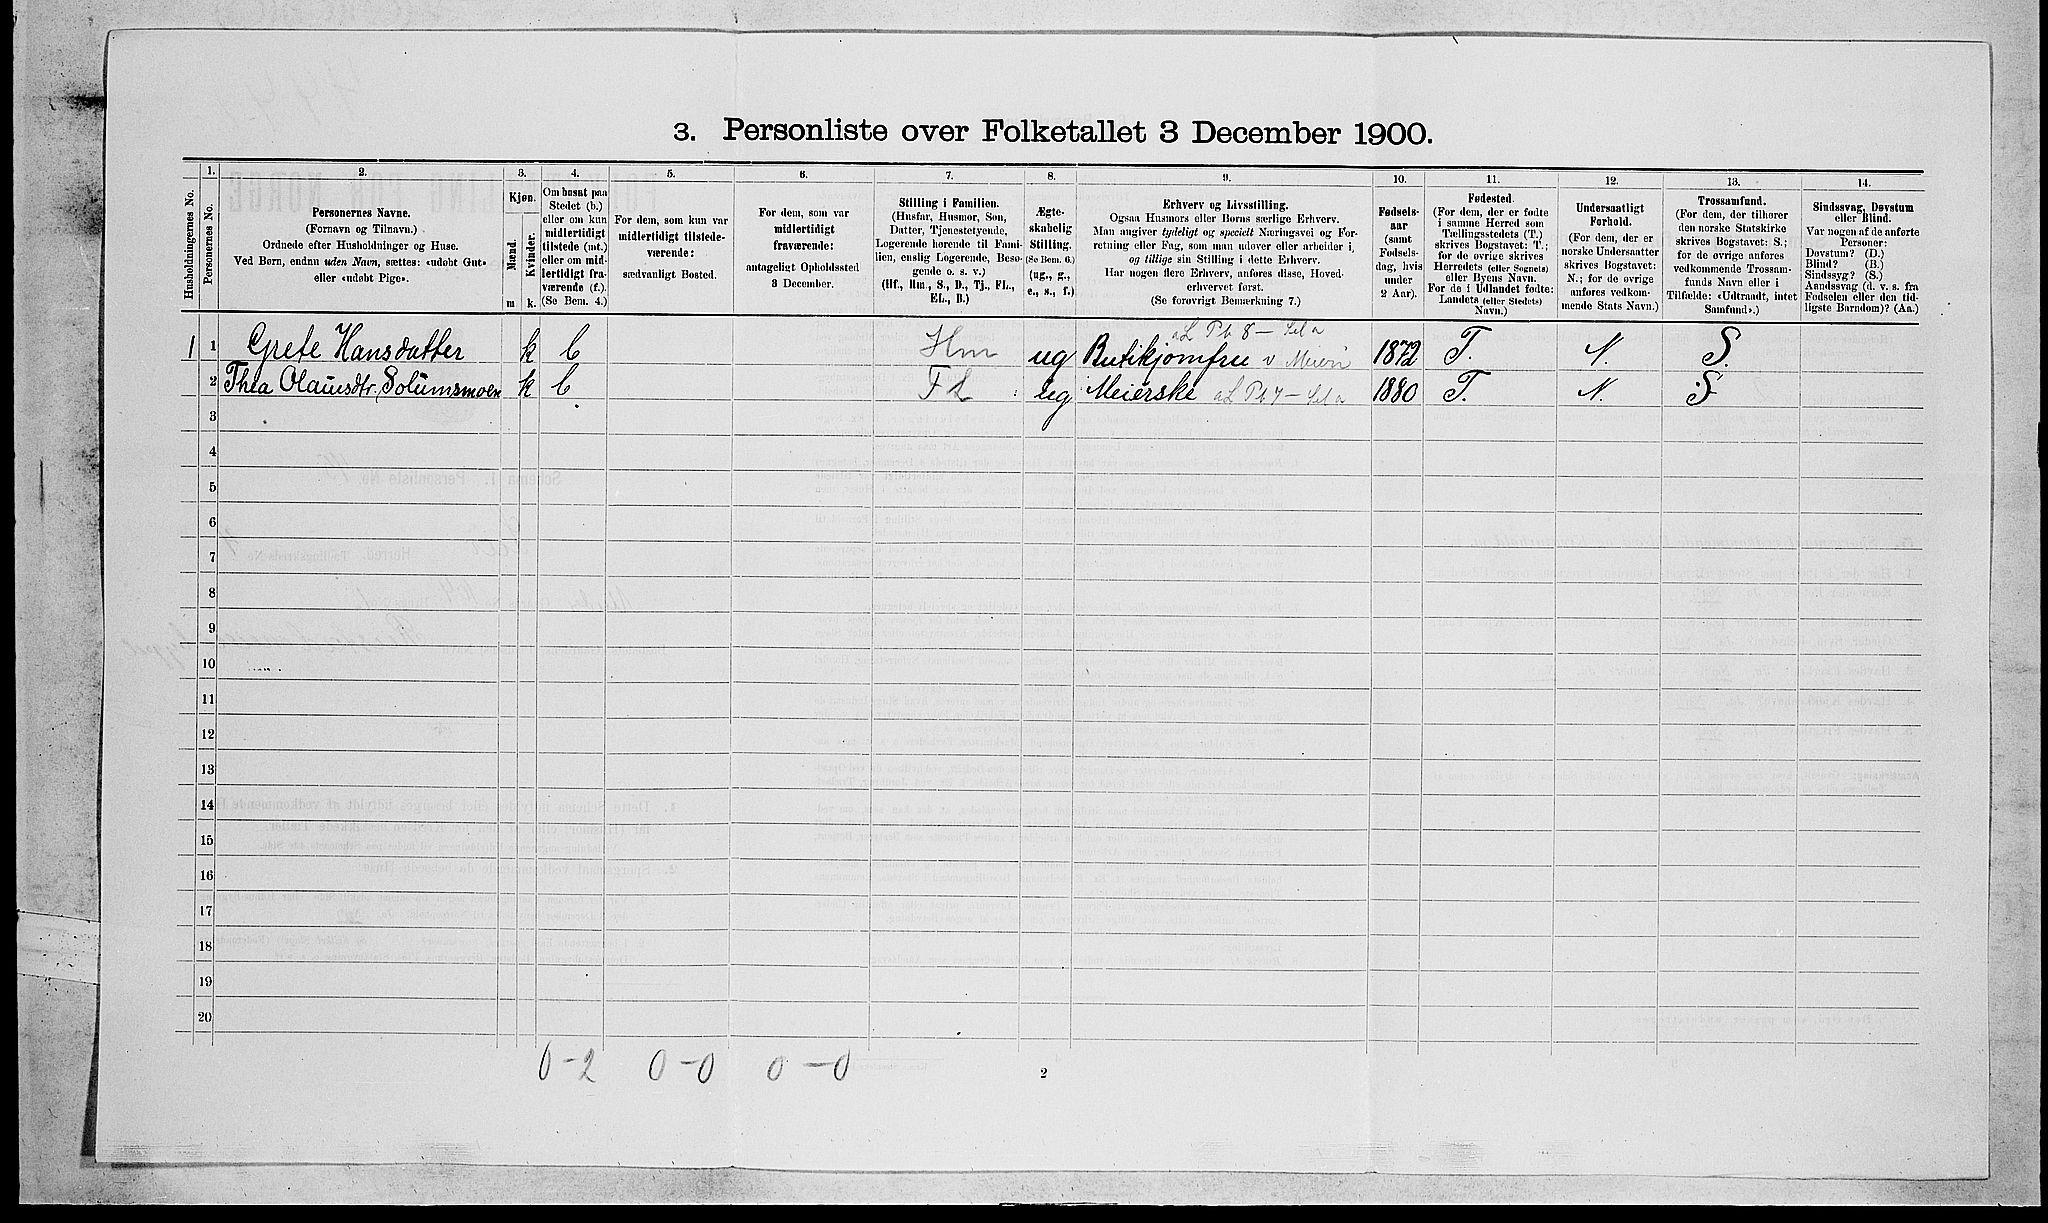 3. Personliste over Folketallet 3 December 1900.
Husholdningernes No.
1.
Personernes No.
2.
Personernes Navne.
(Fornavn og Tilnavn.)
Ordnede efter Husholdninger og Huse.
Ved Børn, endnu uden Navn, sættes: «udøbt Gut»
eller «udøbt Pige».
3.
Kjøn.
Mænd.
Kvinder.
m
k.
4.
Om bosat paa
Stedet (b.)
eller om kun
midlertidigt
tilstede (mt.)
eller om mid-
lertidigt fra-
værende (f.).
(Se Bem. 4.)
5.
For dem, som kun var
midlertidigt tilstede-
værende:
sædvanligt Bosted.
6.
For dem, som var
midlertidigt
fraværende:
antageligt Opholdssted
3 December.
7.
Stilling i Familien.
(Husfar, Husmor, Søn,
Datter, Tjenestetyende,
Logerende hørende til Fami-
lien, enslig Logerende, Besø-
gende o. s. v.)
(Hf., Hm., S., D., Tj., FL.,
EL., B.)
8.
Ægte-
skabelig
Stilling.
(Se Bem. 6.)
(ug., g.,
e., s., f.)
9.
Erhverv og Livsstilling.
Ogsaa Husmors eller Børns særlige Erhverv.
Man angiver tydeligt og specielt Næringsvei og For-
retning eller Fag, som man udøver eller arbeider i,
og tillige sin Stilling i dette Erhverv.
Har nogen flere Erhverv, anføres disse, Hoved-
erhvervet først.
(Se forøvrigt Bemerkning 7.)
10.
Fødsels-
aar
(samt
Fødsels-
dag, hvis
under
2 Aar).
11.
Fødested.
(For dem, der er fødte
i samme Herred som
Tællingsstedets (T.)
skrives Bogstavet: T.;
for de øvrige skrives
Herredets (eller Sognets)
eller Byens Navn.
For de i Udlandet fødte:
Landets (eller Stedets)
Navn.)
12.
Undersaatligt
Forhold.
(For dem, der er
norske Undersaatter
skrives Bogstavet:
N.; for de øvrige
anføres vedkom-
mende Stats Navn.)
13.
Trossamfund.
(For dem, der tilhører
den norske Statskirke
skrives Bogstavet: S.;
for de øvrige anføres
vedkommende Trossam-
funds Navn eller i
Tilfælde: «Udtraadt, intet
Samfund».)
14.
Sindssvag, Døvstum
eller Blind.
Var nogen af de anførte
Personer:
Døvstum? (D.)
Blind? (B.)
Sindssyg? (S.)
Aandssvag (d. v. s. fra
Fødselen eller den tid-
ligste Barndom)? (Aa.)
1 1 Grete Hansdatter k b Hm ug Butikjomfru v Meieri 1872 T. N. S.
2 Thea Olausdtr. Solumsmoen k b FL ug Meierske 1880 T. N. S
3
4
5
6
7
8
9
10
11
12
13
14
15
16
17
18
19
20
0-2 0-0 0-0
2